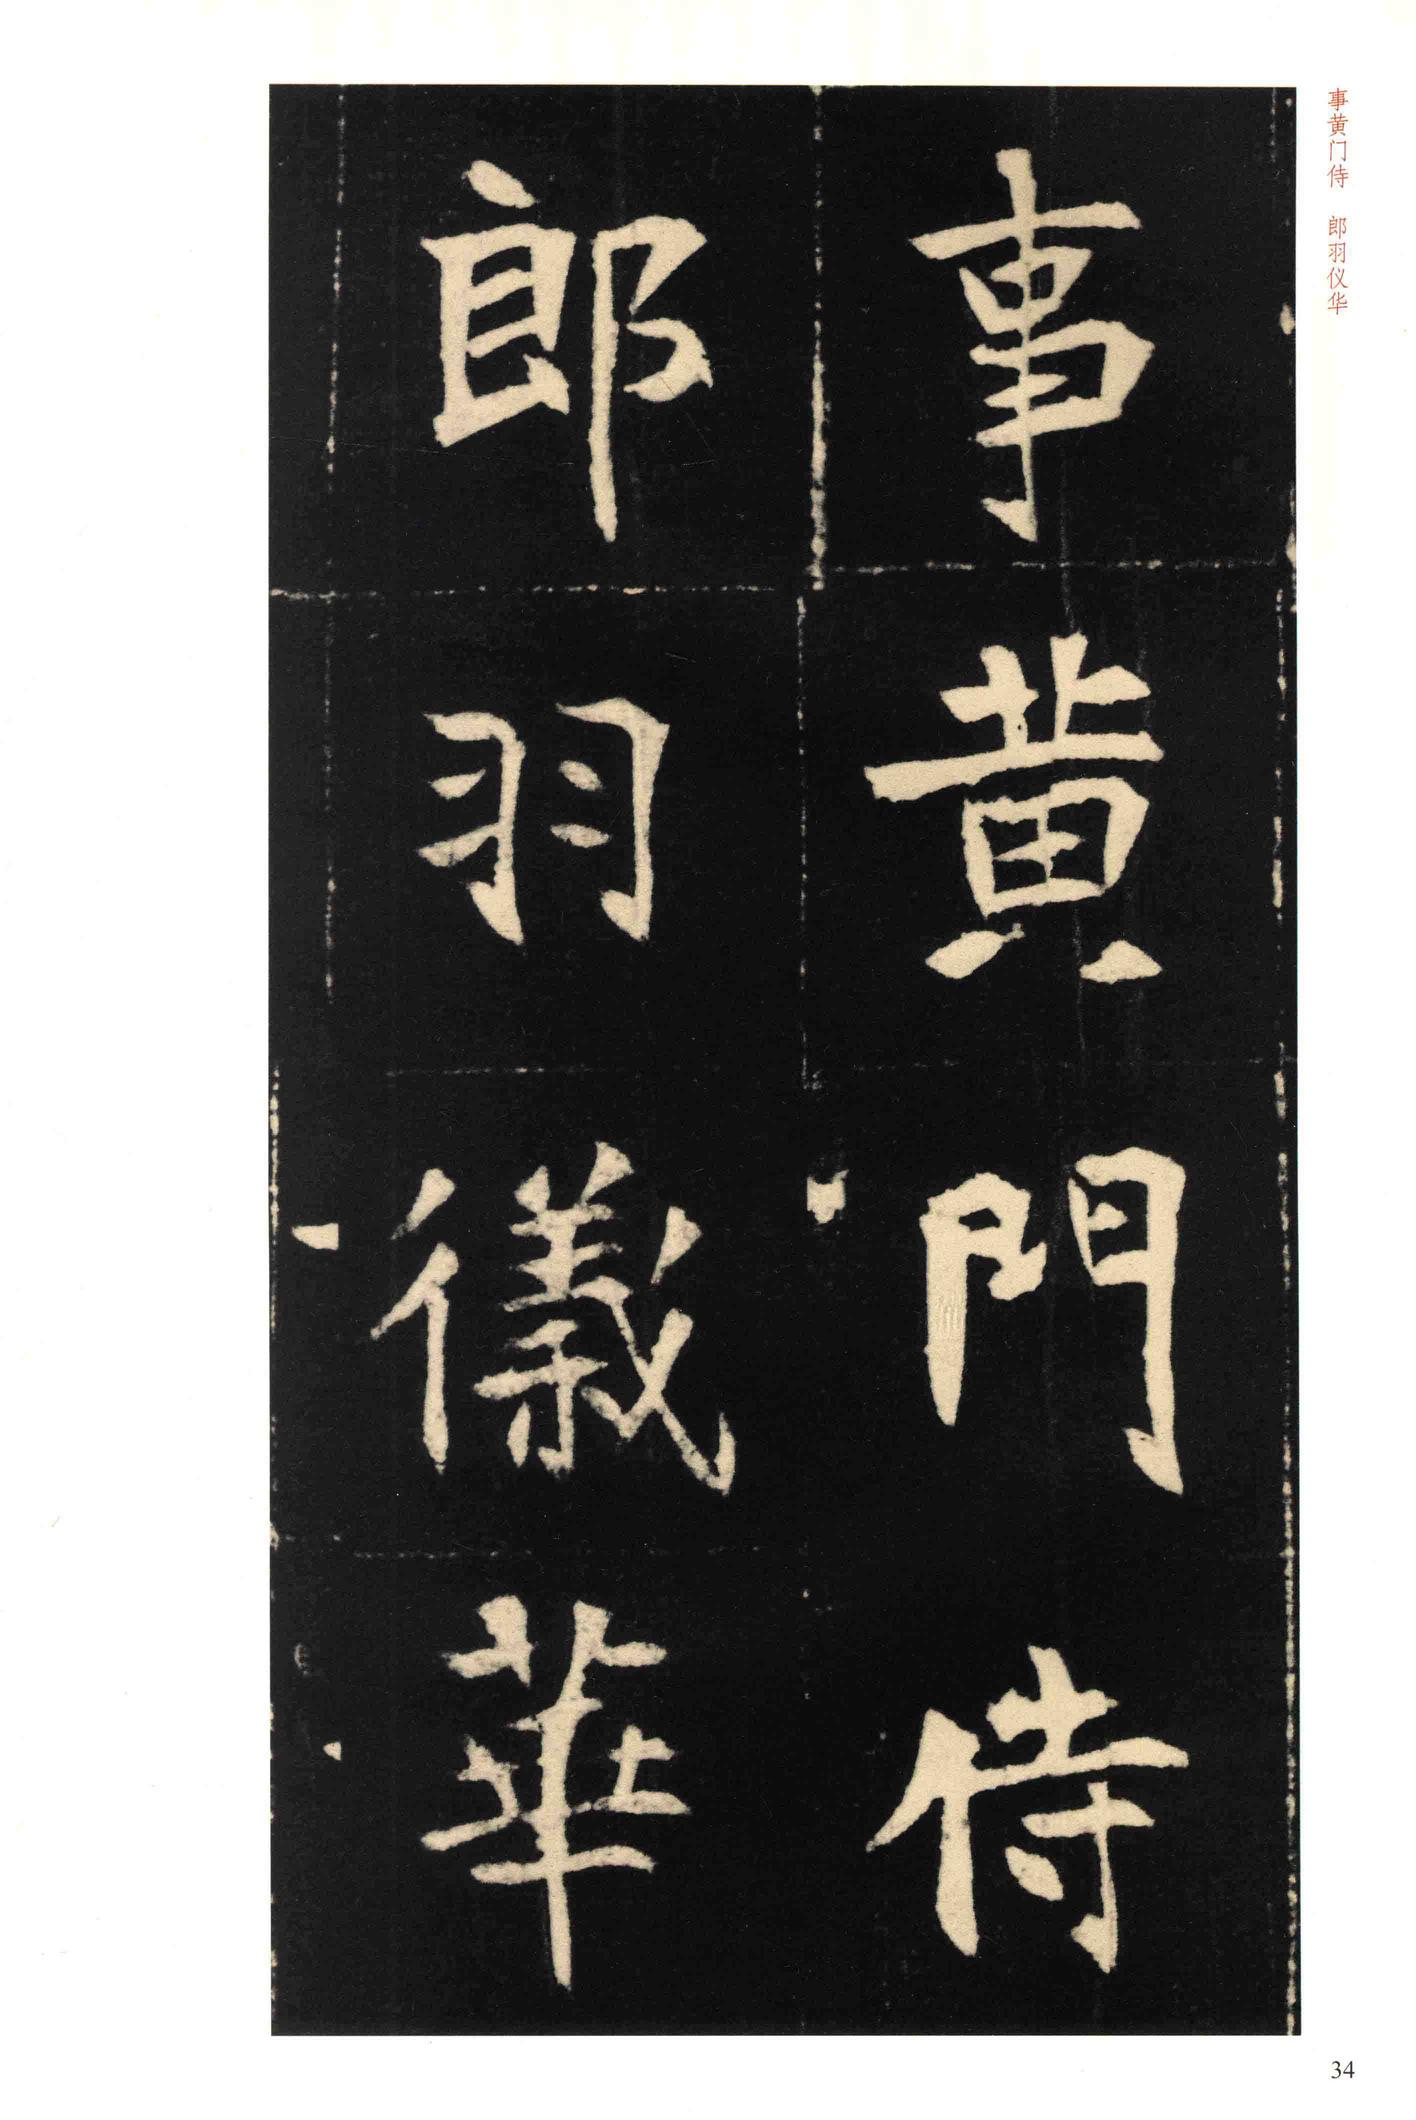 事黃門侍
郎羽儀華
事黄门侍 郎羽仪华
34